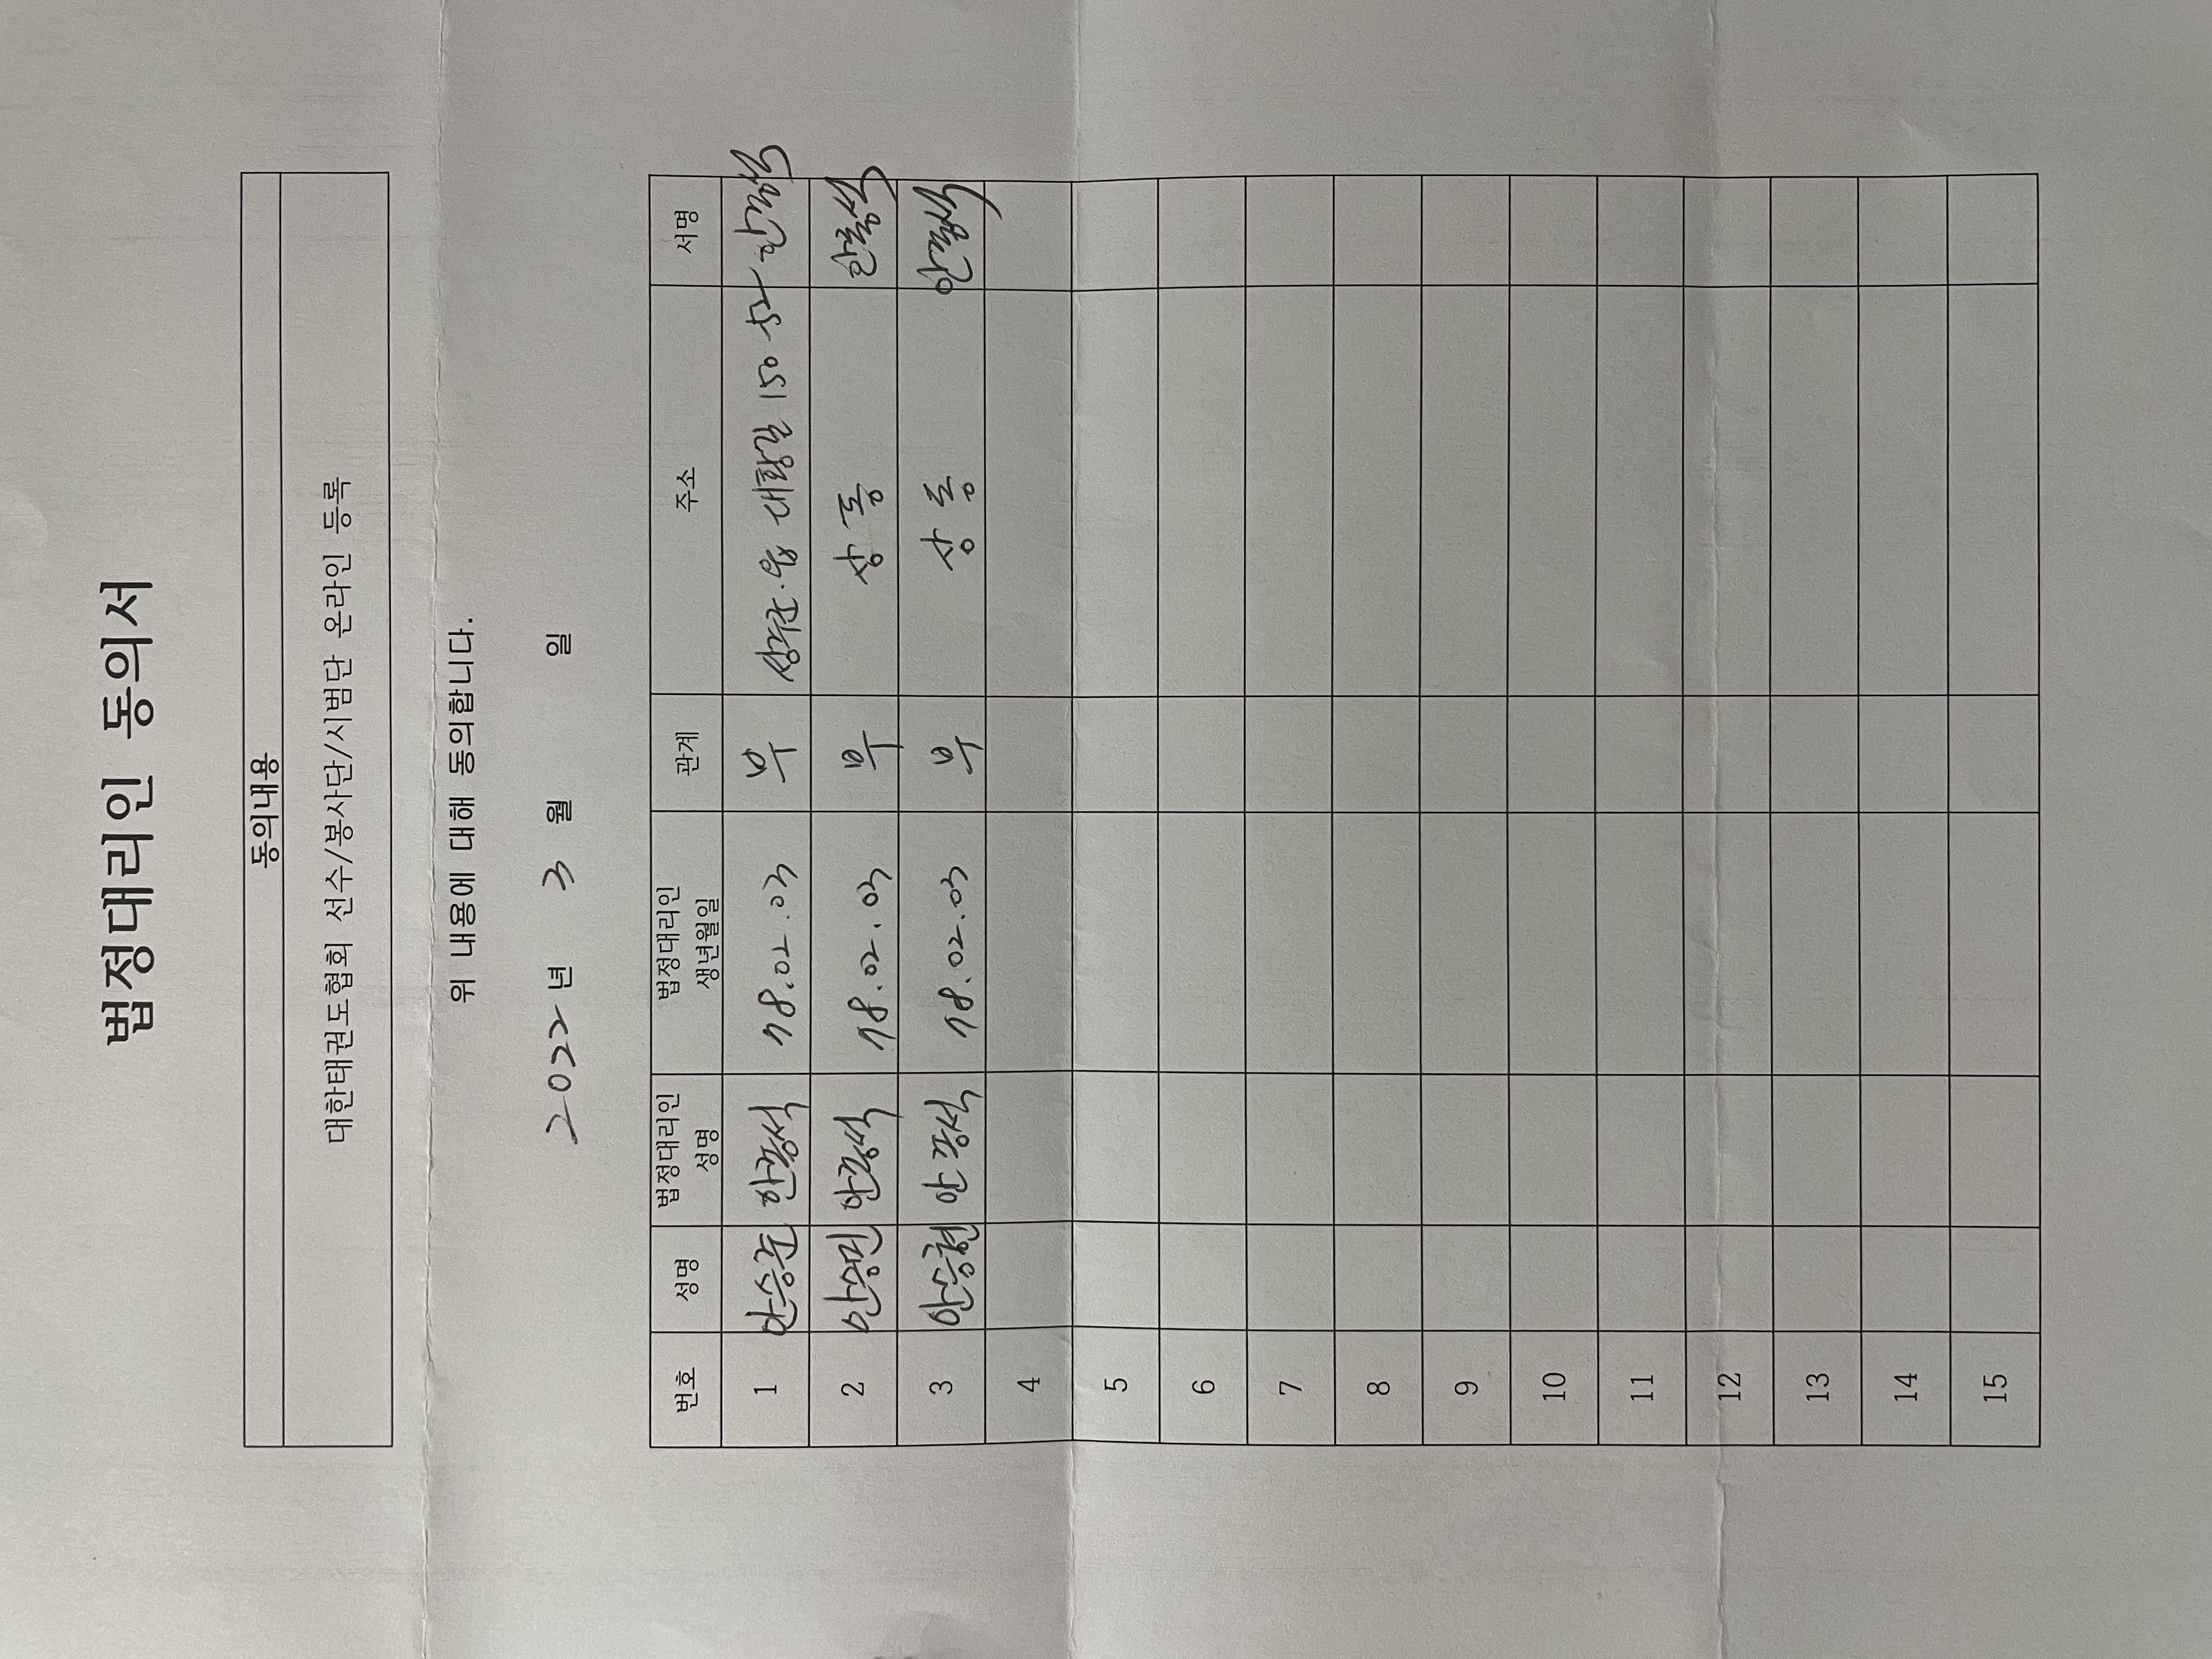 법정대리인 동의서
동의내용
대한태권도협회 선수/봉사단/시범단 온라인 등록
위 내용에 대해 동의합니다.
2022년 3월 일
번호 성명 법정대리인 성명 법정대리인 생년월일 관계 주소 서명
1 안승준 안광석 78.02.03 부 대황길 150-52
2 안승민 안광석 78.02.03 부 상동
3 안승현 안광석 78.02.03 부 상동
4
5
6
7
8
9
10
11
12
13
14
15